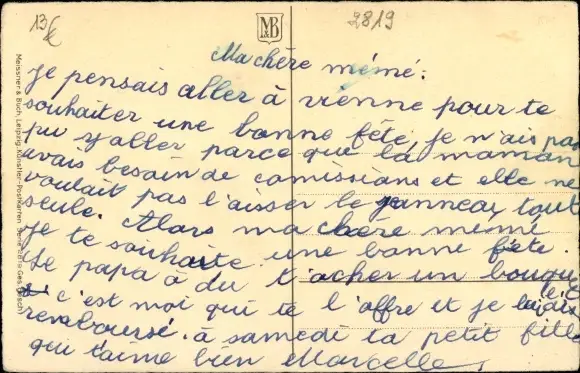 13€
M&B
2819
Ma chère mémé:
je pensais aller à vienne pour te
souhaiter une bonne fête, je n'ais pas
pu y aller parce que la maman
avais besoin de comissions et elle ne
voulait pas l'aisser le jeanneau tout
seule. Alors ma chère mémé
je te souhaite une bonne fête.
Le papa à du t'acher un bouquet
c'est moi qui te l'offre et je
remboursé. à samedi ta petit fille
qui t'aime bien Marcelle,
Meissner & Buch, Leipzig. Künstler-Postkarten Serie